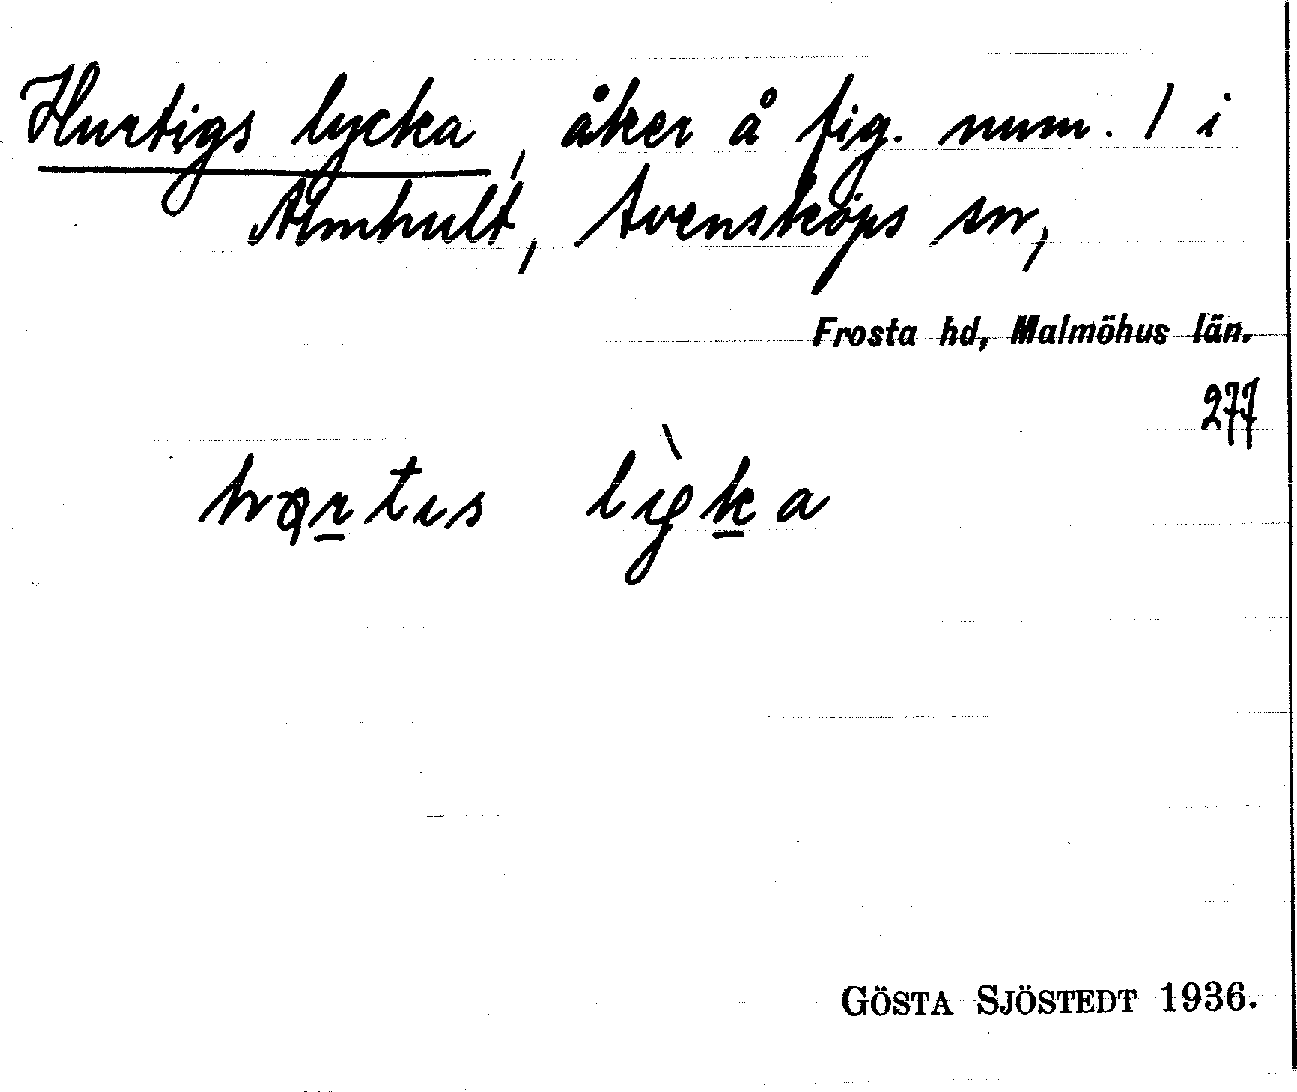 Hurtigs lycka, åker å fig. num. 1 i
Almhult, Svensköps sn,
Frosta hd, Malmöhus län.
277
GÖSTA SJÖSTEDT 1936.